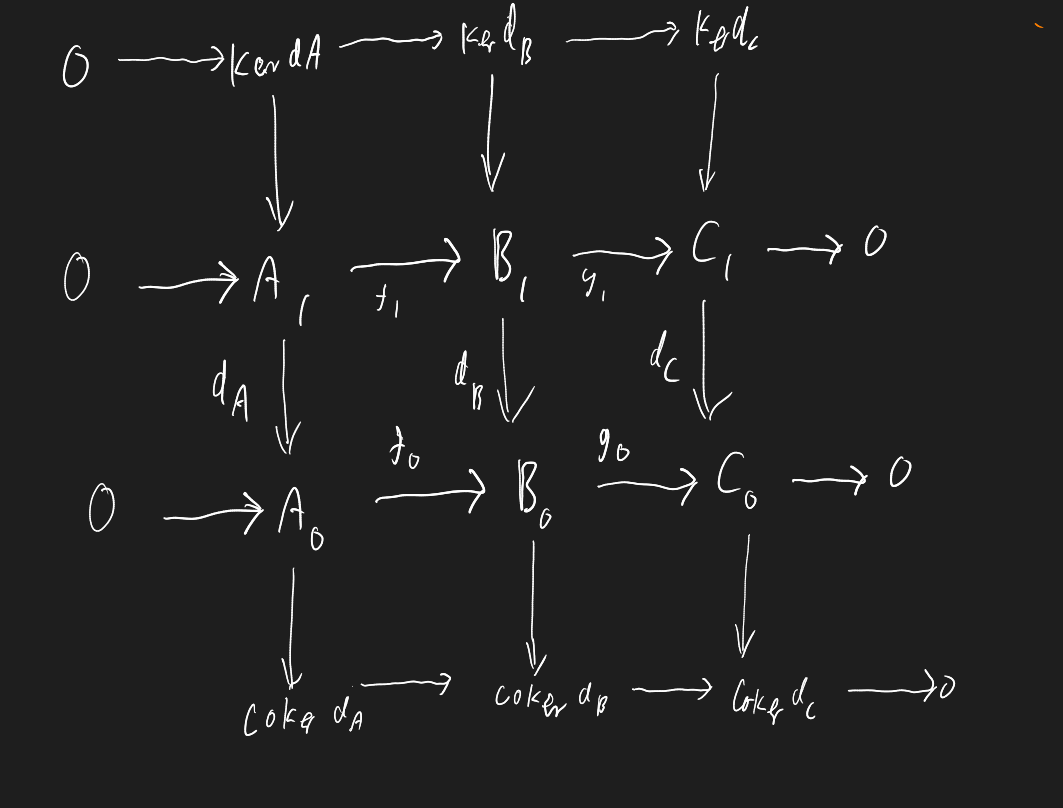 0 → ker dA → ker d_B → ker d_C
0 → A_1 → B_1 → C_1 → 0
f_1 g_1
d_A d_B d_C
f_0 g_0
0 → A_0 → B_0 → C_0 → 0
coker d_A → coker d_B → coker d_C → 0